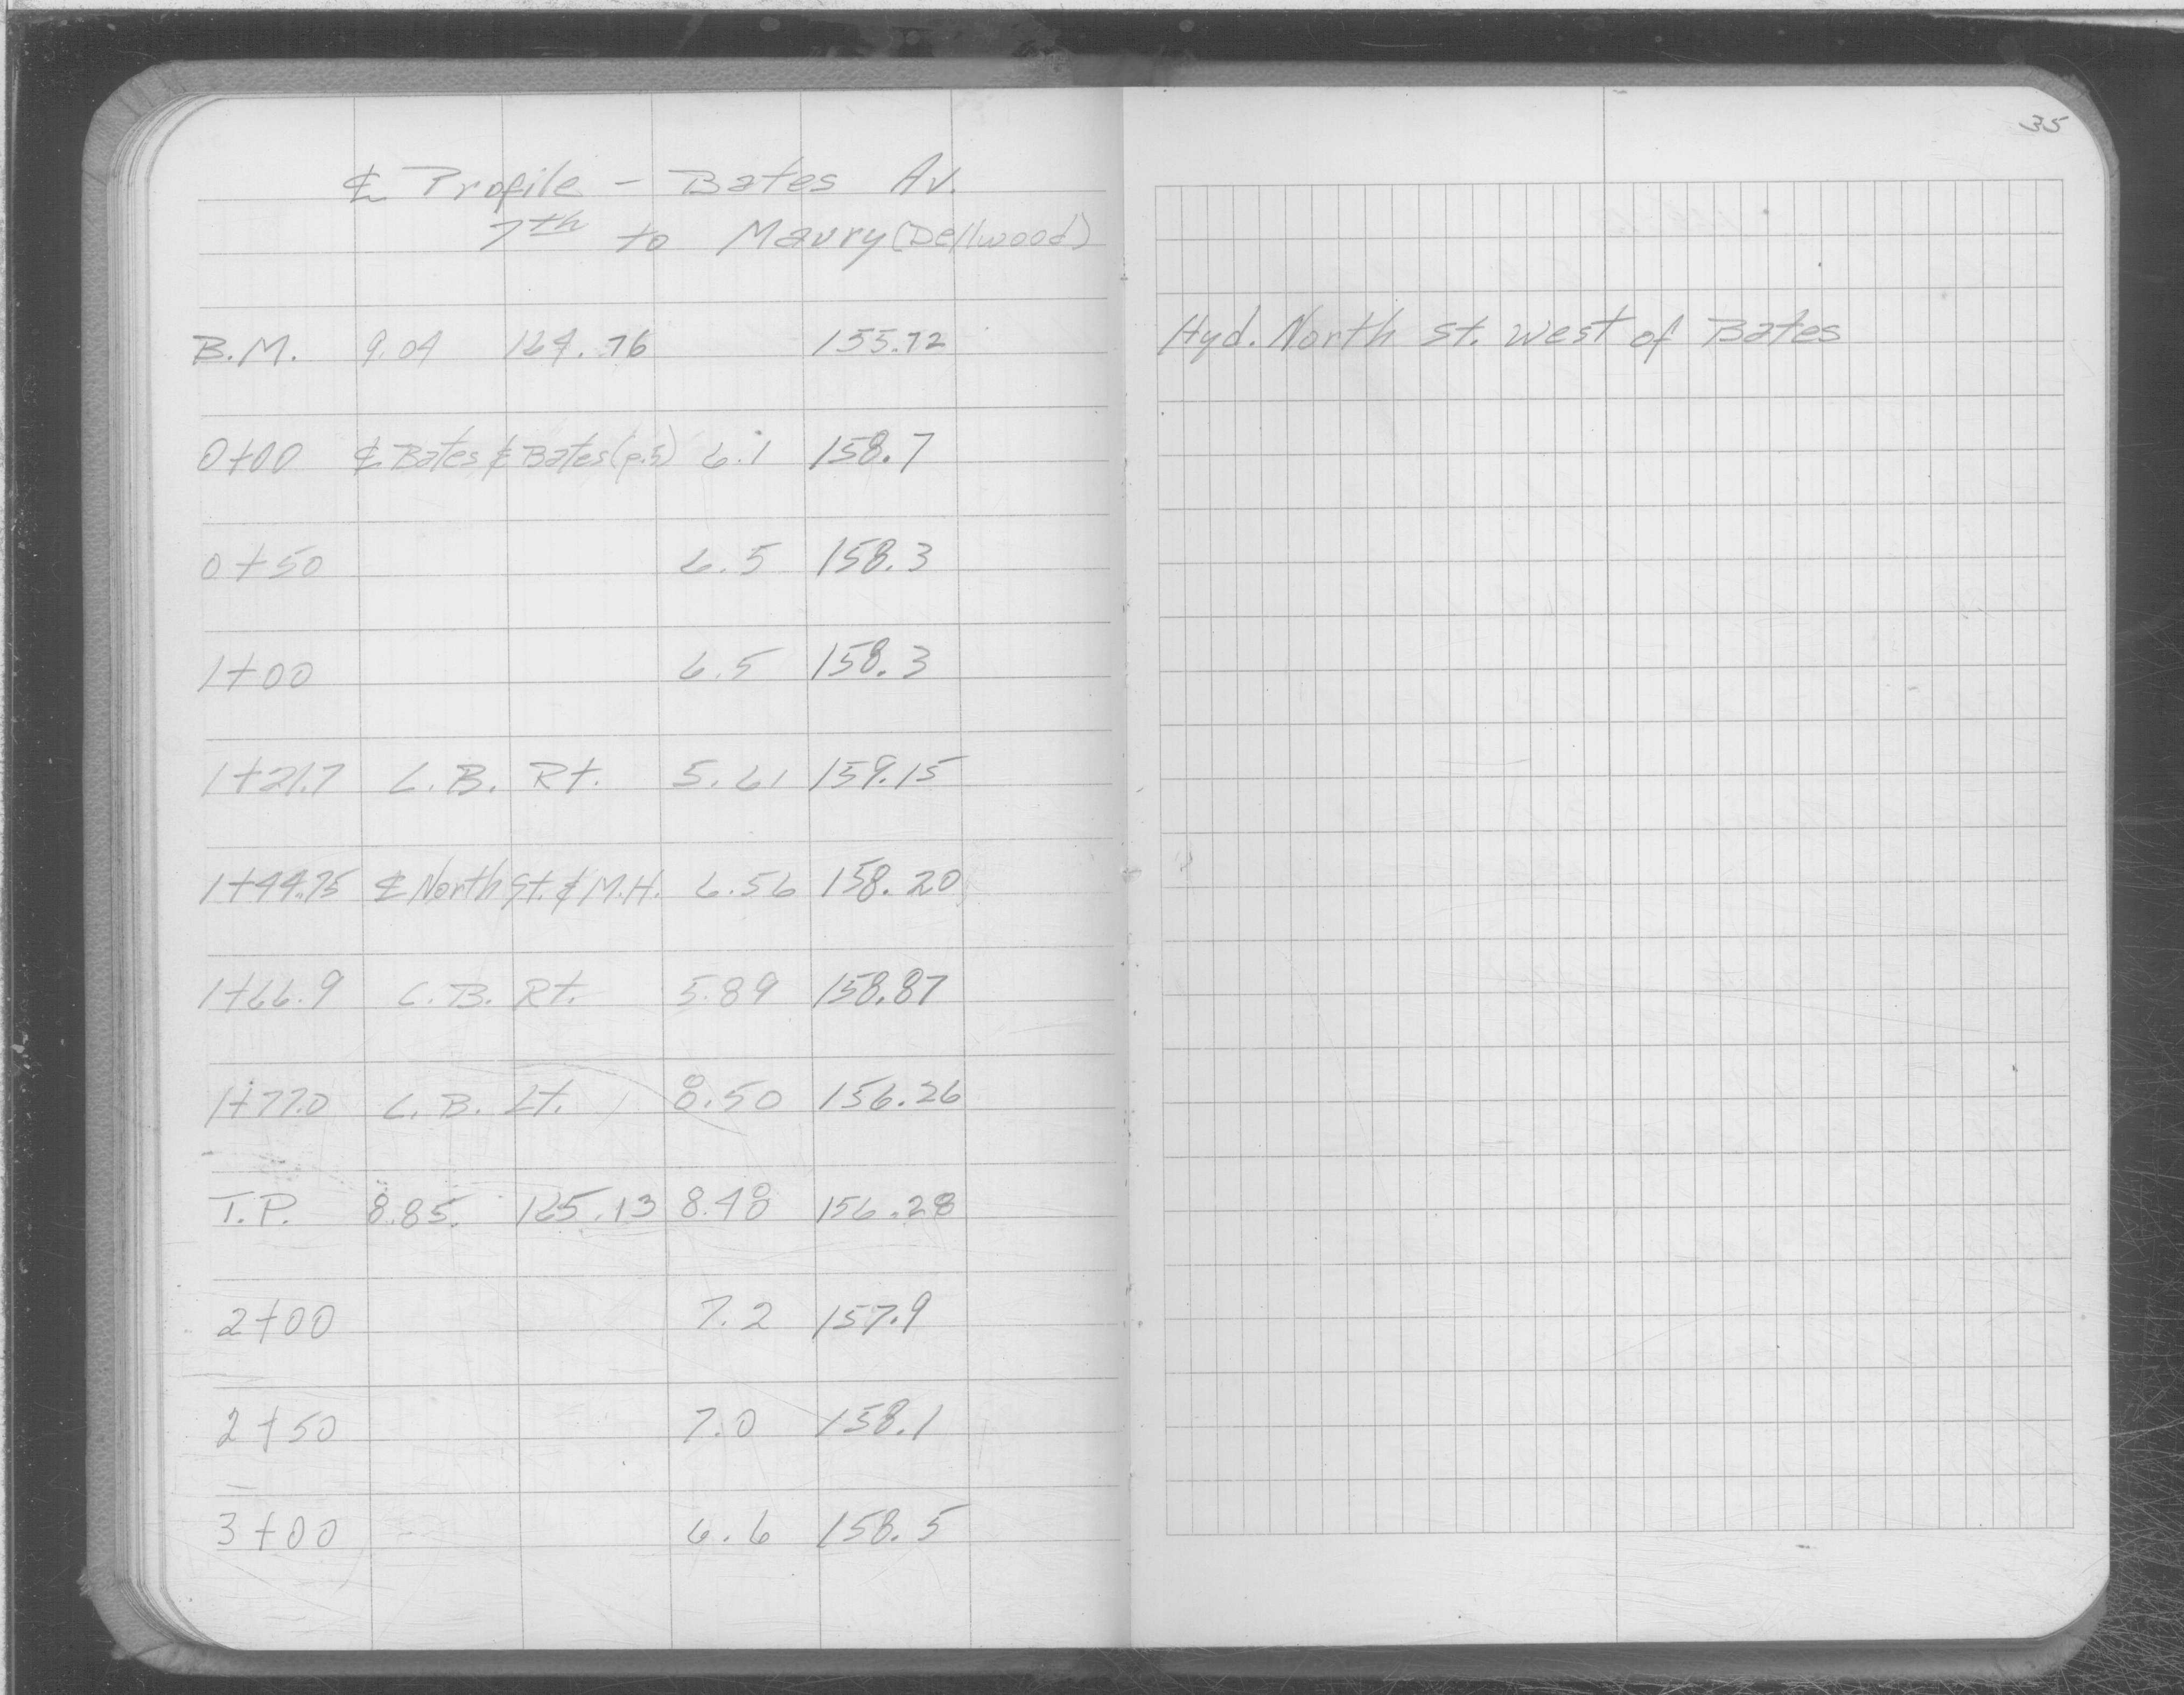 35
℄ Profile - Bates Av.
7th to Maury (Dellwood)
B.M. 9.04 164.76 155.72 Hyd. North St. west of Bates
0+00 ℄ Bates ℄ Bates (p.5) 6.1 158.7
0+50 6.5 158.3
1+00 6.5 158.3
1+21.7 C.B. Rt. 5.61 159.15
1+44.75 ℄ North St. & M.H. 6.56 158.20
1+66.9 C.B. Rt. 5.89 158.87
1+77.0 C.B. Lt. 8.50 156.26
T.P. 8.85 165.13 8.48 156.28
2+00 7.2 157.9
2+50 7.0 158.1
3+00 6.6 158.5